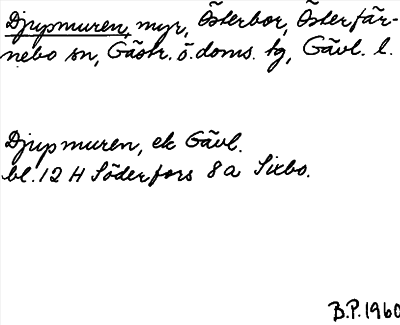 Djupmuren, myr, Österbor, Österfär-
nebo sn, Gästr. ö. doms. tg, Gävl. l.
Djupmuren, ek Gävl.
bl. 12 H Söderfors 8 a Sixbo.
B.P. 1960